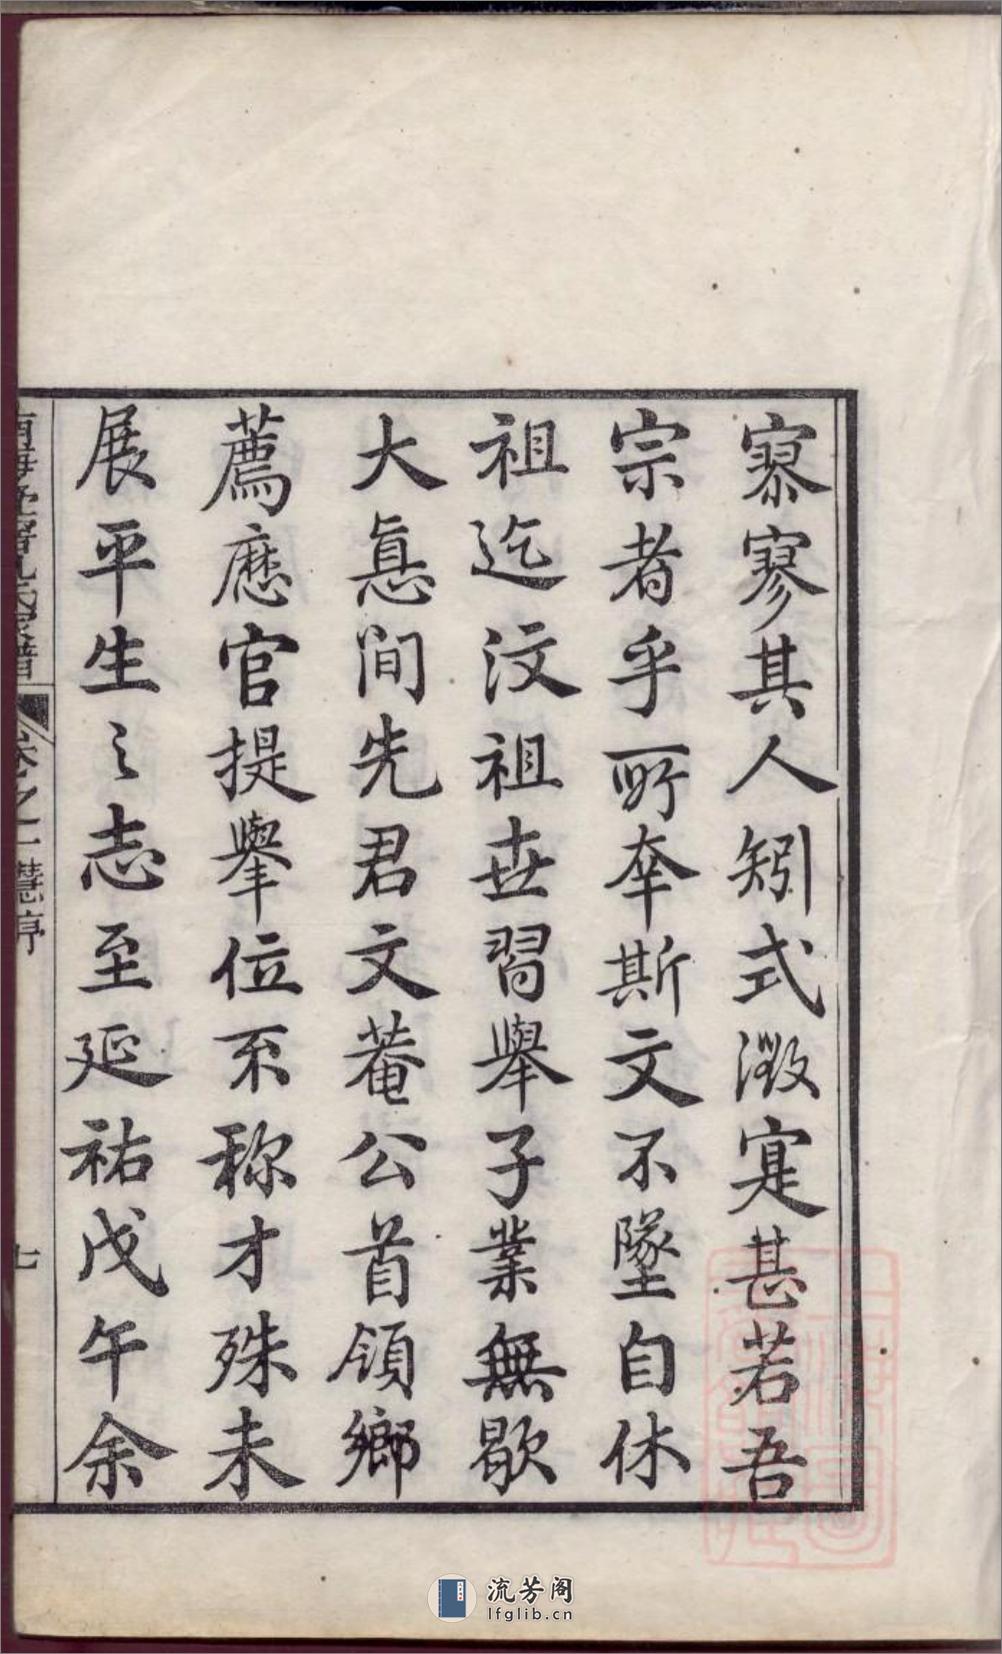 寮寥其人矧式澂寔甚若吾
宗者乎所奉斯文不墜自休
祖迄汶祖世習舉子業無歇
大惪間先君文菴公首領鄉
薦應官提舉位不称才殊未
展平生之志至延祐戊午余
南海孔氏家譜
卷之一舊序
七
流芳阁
lfglib.cn